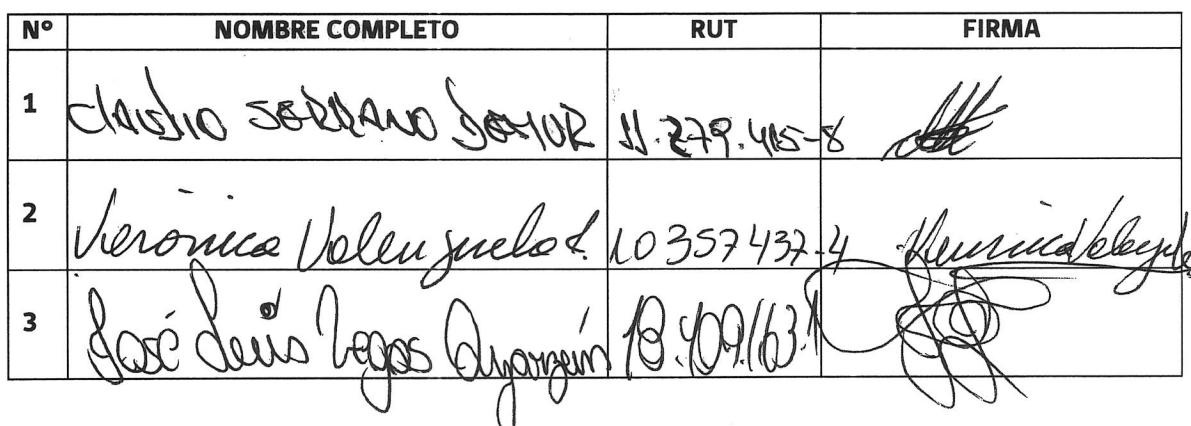 Nº NOMBRE COMPLETO RUT FIRMA
1 CLAUDIO SERRANO 11.279.415-8
2 Verónica Valenzuela 10357437-4
3 José Luis Vegas Oyarzún